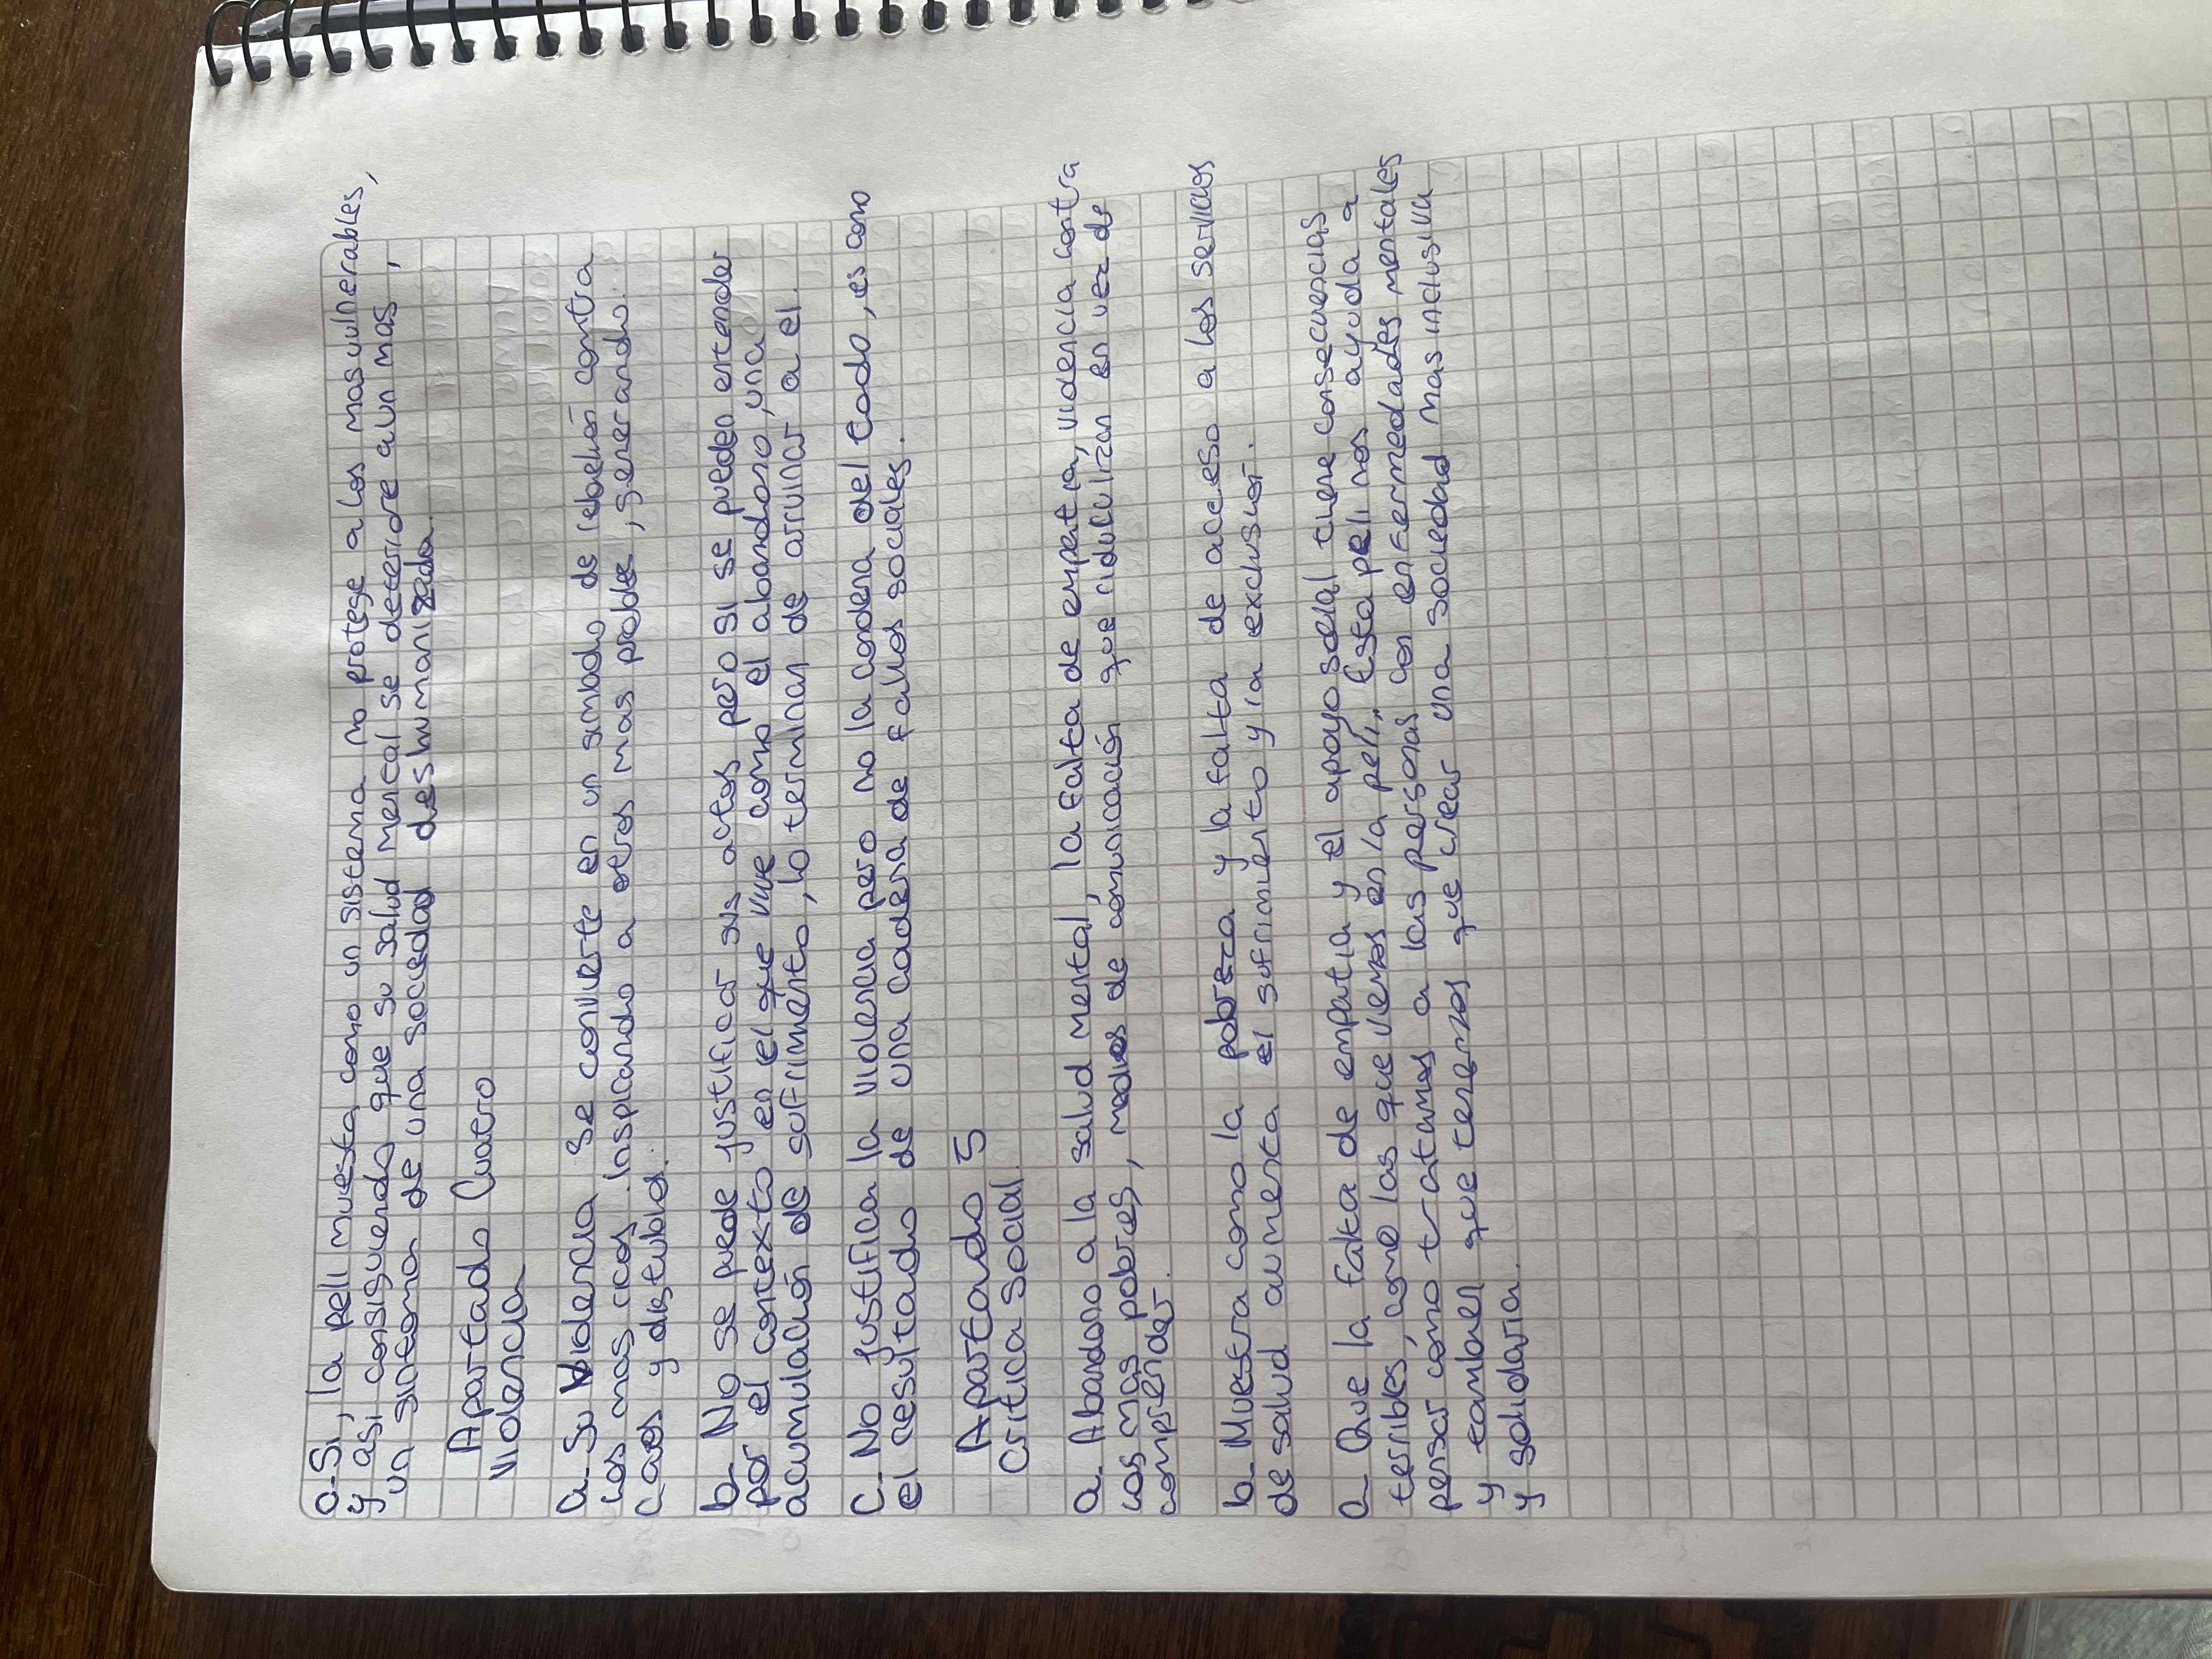 a- Si, la peli muesta como un sistema no protege a los mas vulnerables,
y asi consiguiendo que su salud mental se deteriore aun mas,
un sintoma de una sociedad deshumanizada.
Apartado Cuatro
Violencia
a- Su violencia se convierte en un simbolo de rebelión contra
los mas ricos. Inspirando a otros mas pobres, generando
caos y disturbios.
b- No se puede justificar sus actos pero si se pueden entender
por el contexto en el que vive como el abandono, una
acumulación de sufrimiento, lo terminan de arruinar a el.
C- No justifica la violencia pero no la condena del todo, es como
el resultado de una cadena de fallos sociales.
Apartado 5
Critica social
a- Abandono a la salud mental, la falta de empatia, videncia contra
los mas pobres, medios de comunicación que ridiculizan en vez de
comprender.
b- Muestra como la pobreza y la falta de acceso a los servicios
de salud aumenta el sufrimiento y la exclusioi.
a- Que la falta de empatia y el apoyo social tiene consecuencias
terribles, como las que vemos en la peli, Esta peli nos ayuda a
pensar cómo tratamos a las personas con enfermedades mentales
y tambien que tenemos que crear una sociedad mas inclusiva
y solidaria.